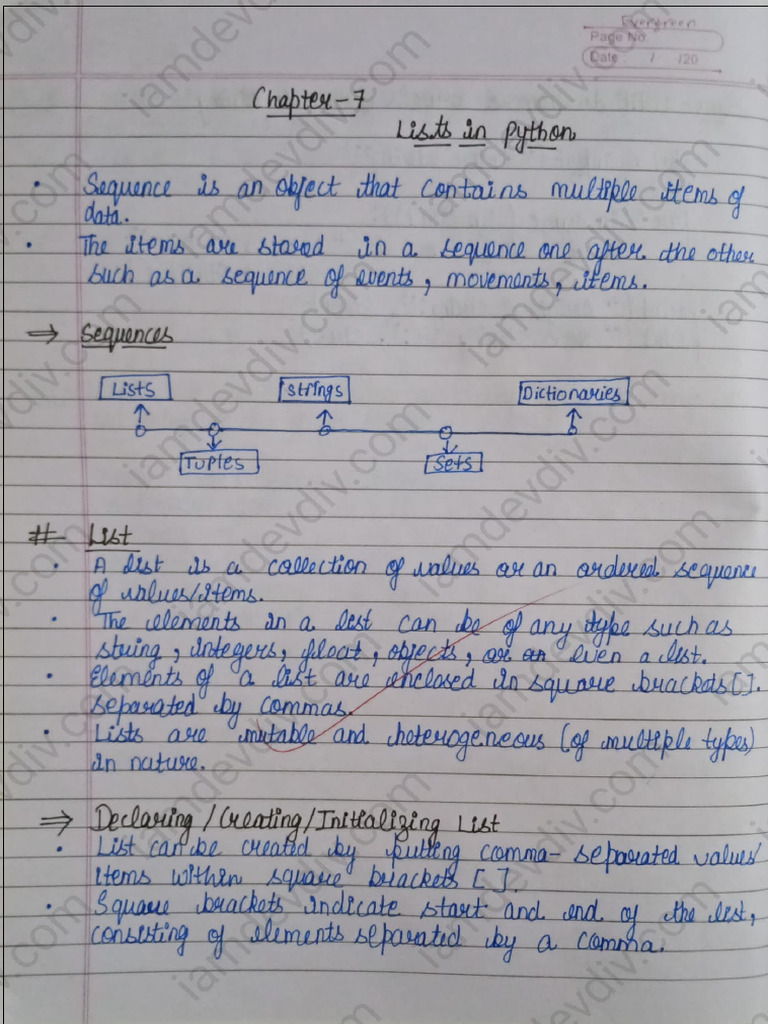 Evergreen
Page No.
Date : / /20
Chapter-7
Lists in Python
• Sequence is an object that contains multiple items of
data.
• The items are stored in a sequence one after the other
such as a sequence of events, movements, items.
⇒ Sequences
Lists Strings Dictionaries
Tuples Sets
# List
• A list is a collection of values or an ordered sequence
of values/items.
• The elements in a list can be of any type such as
string, integers, float, objects, or an even a list.
• Elements of a list are enclosed in square brackets[].
separated by commas.
• Lists are mutable and heterogeneous (of multiple types)
in nature.
⇒ Declaring/Creating/Initializing List
• List can be created by putting comma-separated values/
items within square brackets [ ].
• Square brackets indicate start and end of the list,
consisting of elements separated by a comma.
iamdevdiv.com